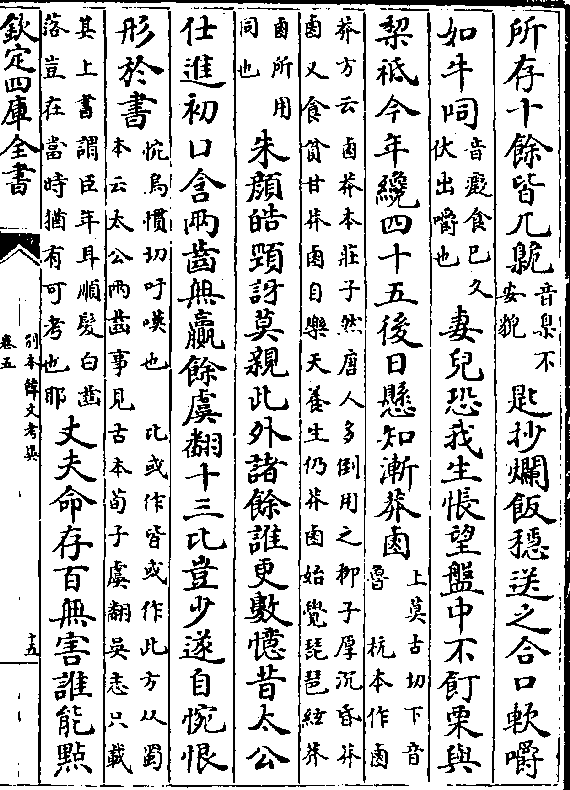 所存十餘皆兀臲音臬不安貌匙抄爛飯穩送之合口軟嚼
如牛呞音癡食已久伏出嚼也妻兒恐我生悵望盤中不飣栗與
梨祗今年纔四十五後日懸知漸莽鹵上莫古切下音魯杭本作鹵
莽方云鹵莽本莊子然唐人多倒用之柳子厚沉昏莽
鹵又食貧甘莽鹵白樂天養生仍莽鹵始覺琵琶絃莽
鹵所用同也朱顏皓頸訝莫親此外諸餘誰更數憶昔太公
仕進初口含兩齒無贏餘虞翻十三比豈少遂自惋恨
形於書惋烏慣切吁嘆也比或作皆或作此方从蜀
本云太公兩齒事見古本荀子虞翻吳志只載
其上書謂臣年耳順髮白齒
落豈在當時猶有可考也耶丈夫命存百無害誰能點
欽定四庫全書
別本韓文考異
卷五
十五